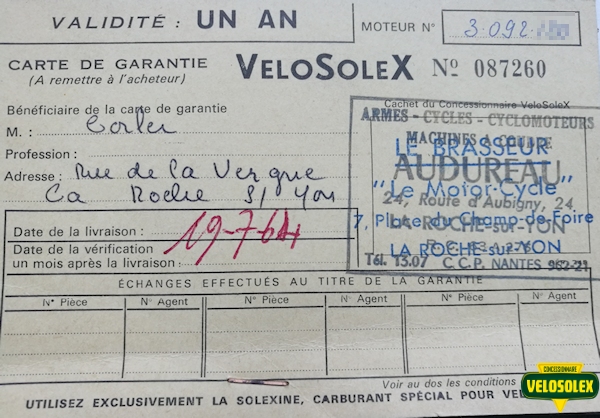 VALIDITÉ : UN AN
MOTEUR N° 3.092
CARTE DE GARANTIE
(A remettre à l'acheteur)
VELOSOLEX No 087260
Bénéficiaire de la carte de garantie
Cachet du Concessionnaire VELOSOLEX
M. :
Profession :
Adresse : Rue de la Vergne
La Roche S/ Yon
ARMES - CYCLES - CYCLOMOTEURS
MACHINES A COUDRE
LE BRASSEUR
AUDUREAU
"Le Motor-Cycle"
24, Route d'Aubigny, 24
7, Place du Champ-de-Foire
LA ROCHE-sur-YON
LA ROCHE sur YON
Tél. 13.07 C.C.P. NANTES 962-21
Date de la livraison : 19-7-64
Date de la vérification
un mois après la livraison :
ÉCHANGES EFFECTUÉS AU TITRE DE LA GARANTIE
N° Pièce N° Agent N° Pièce N° Agent N° Pièce N° Agent
Voir au dos les conditions
UTILISEZ EXCLUSIVEMENT LA SOLEXINE, CARBURANT SPÉCIAL POUR
CONCESSIONNAIRE
VELOSOLEX